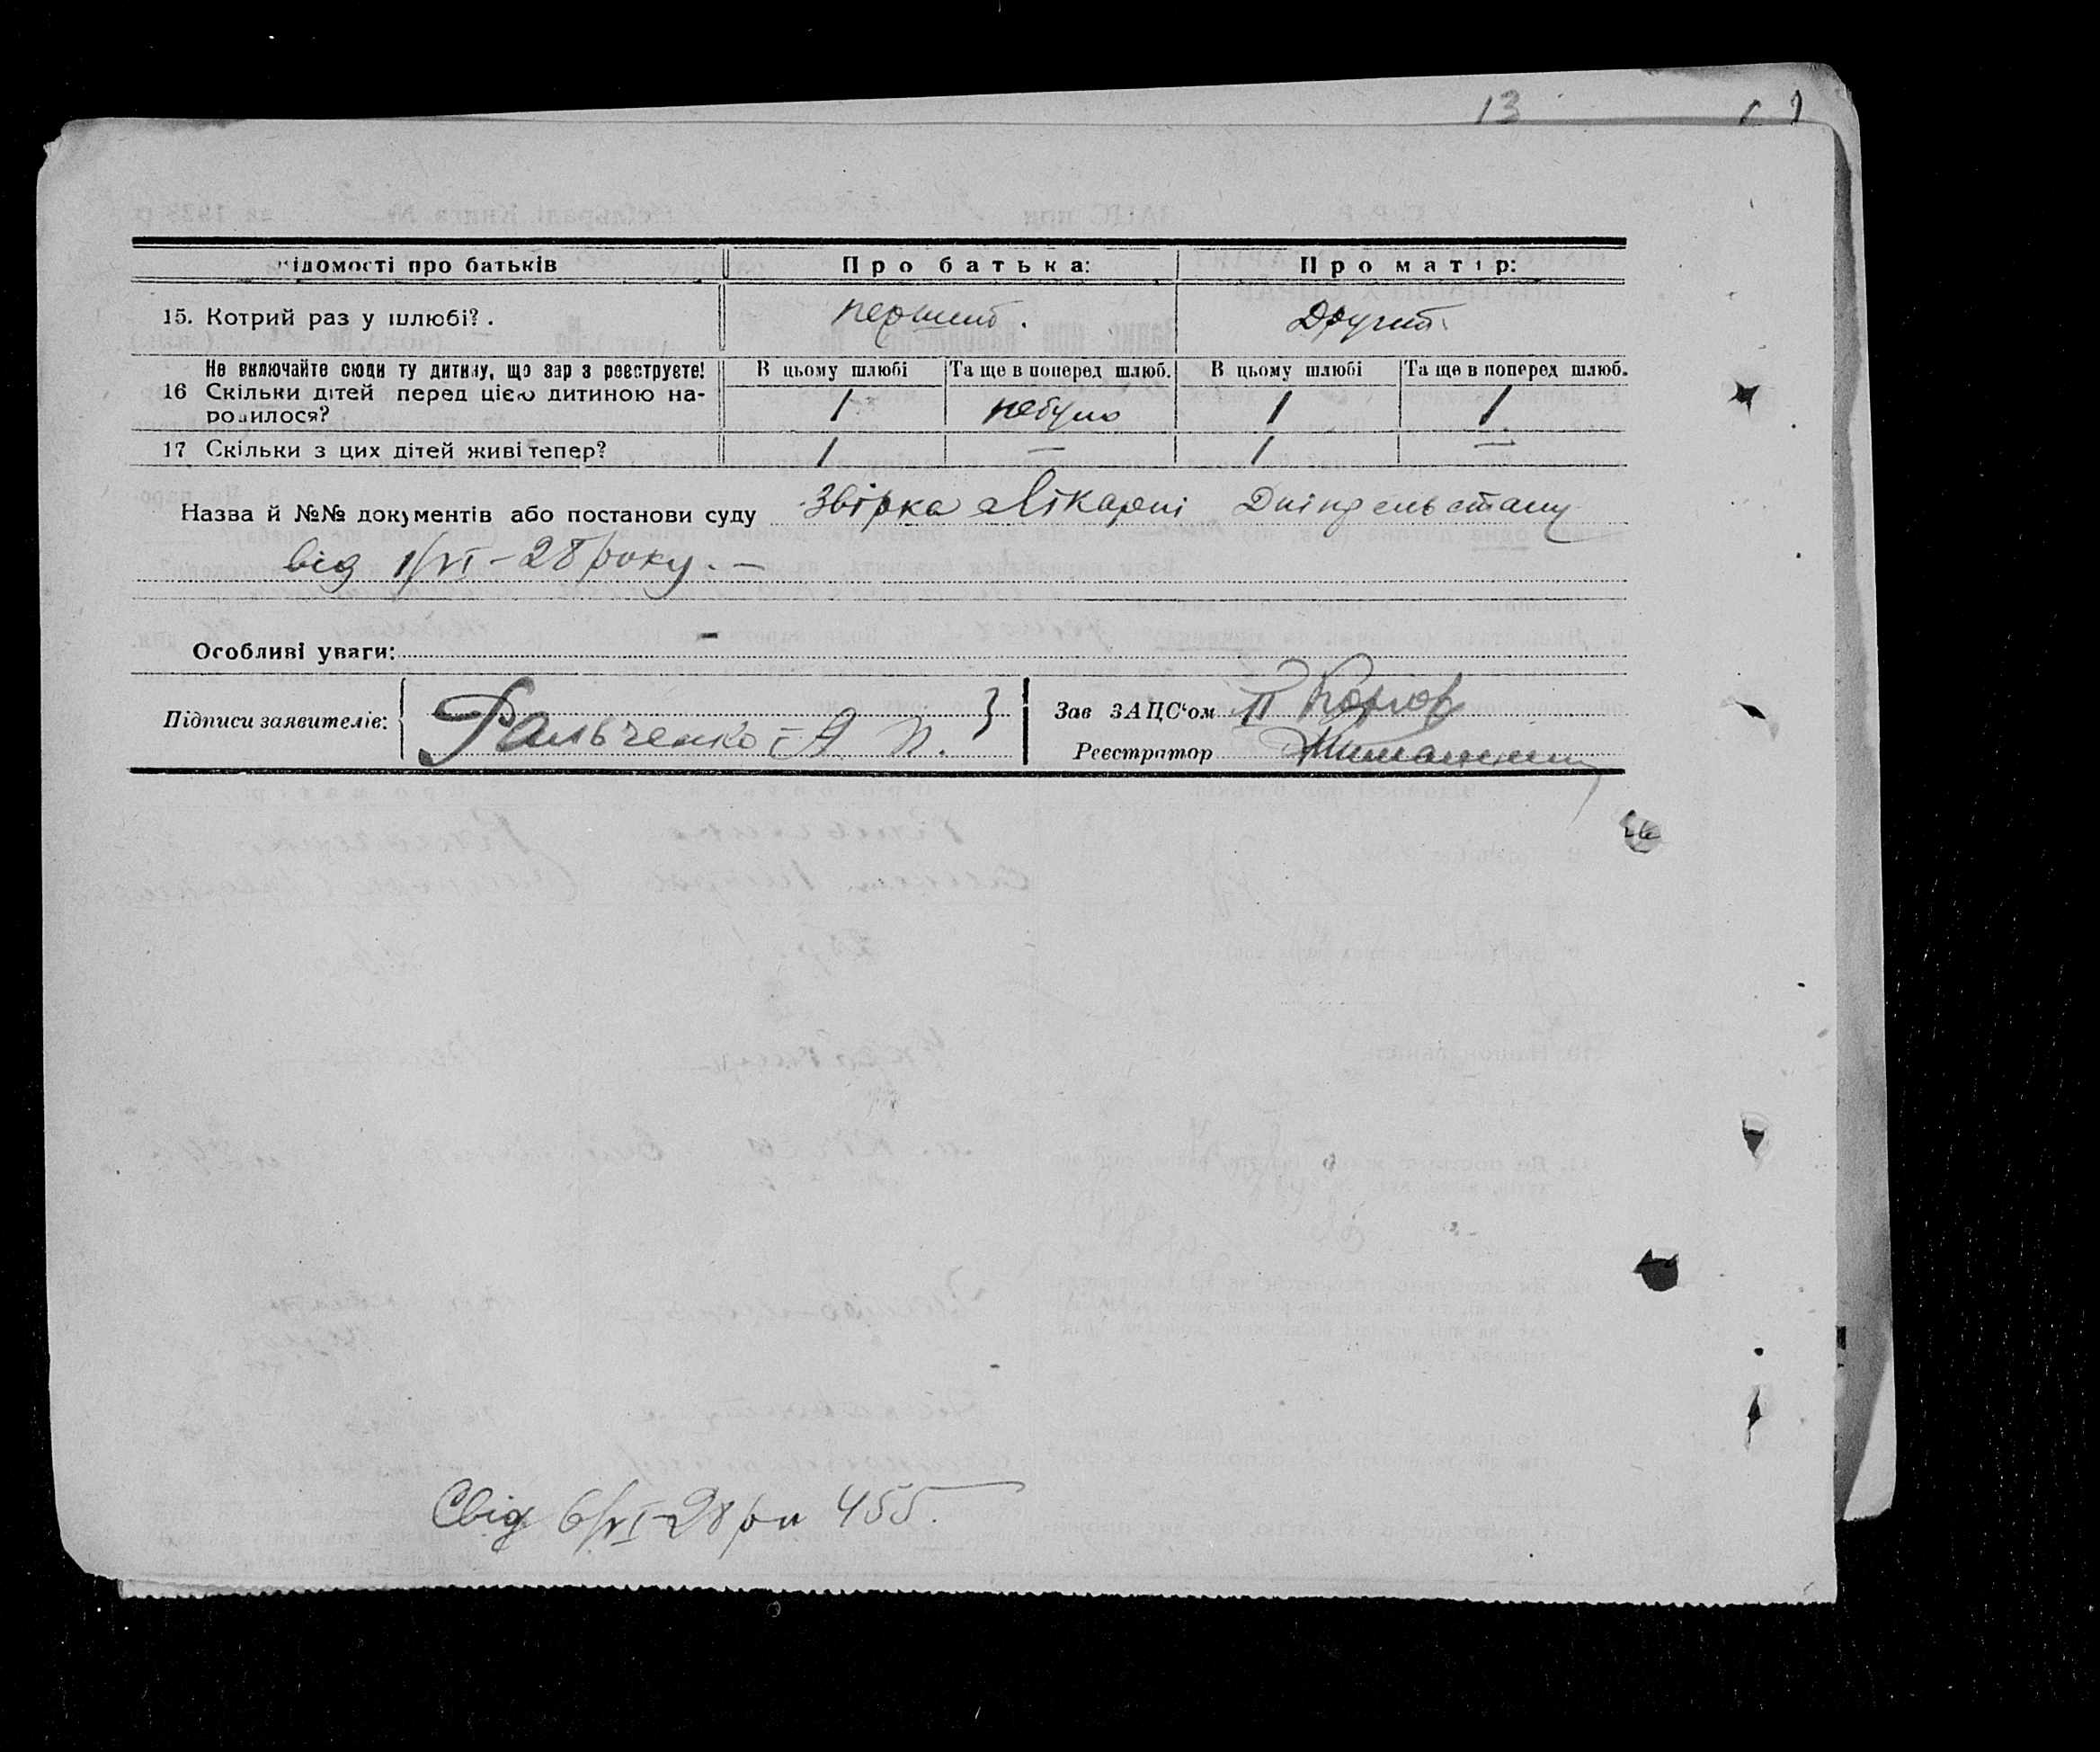 13
ідомості про батьків Про батька: Про матір:
15. Котрий раз у шлюбі?. перший. Другий.
Не включайте сюди ту дитину, що зар з реєструєте! В цьому шлюбі Та ще в поперед шлюб. В цьому шлюбі Та ще в поперед шлюб.
16 Скільки дітей перед цією дитиною на-
родилося? 1 небуло 1 1
17 Скільки з цих дітей живі тепер? 1 — 1 —
Назва й №№ документів або постанови суду Звірка Лікарні
від 1/VI–28 року. –
Особливі уваги: –
Підписи заявителів: Фальченко А П. Зав ЗАЦС‘ом П
Реєстратор
Свід 6/VI–28 р 455.